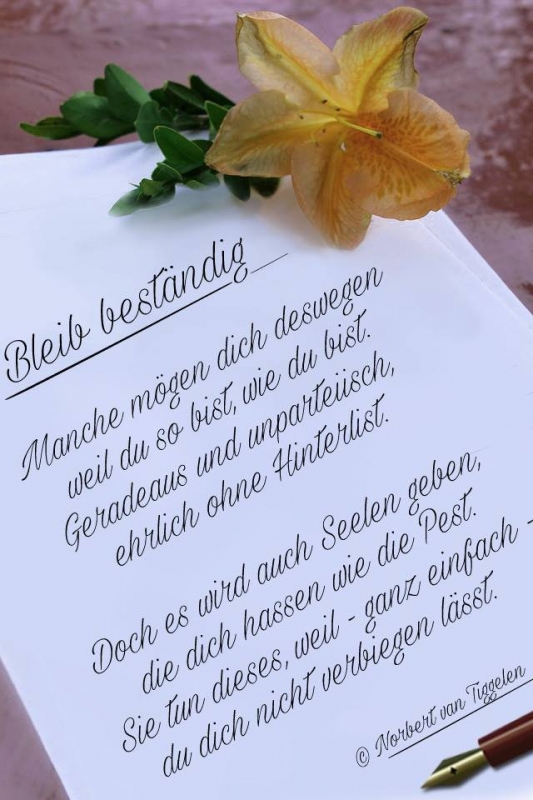 Bleib beständig
Manche mögen dich deswegen
weil du so bist, wie du bist.
Geradeaus und unparteiisch,
ehrlich ohne Hinterlist.
Doch es wird auch Seelen geben,
die dich hassen wie die Pest.
Sie tun dieses, weil - ganz einfach -
du dich nicht verbiegen lässt.
© Norbert van Tiggelen